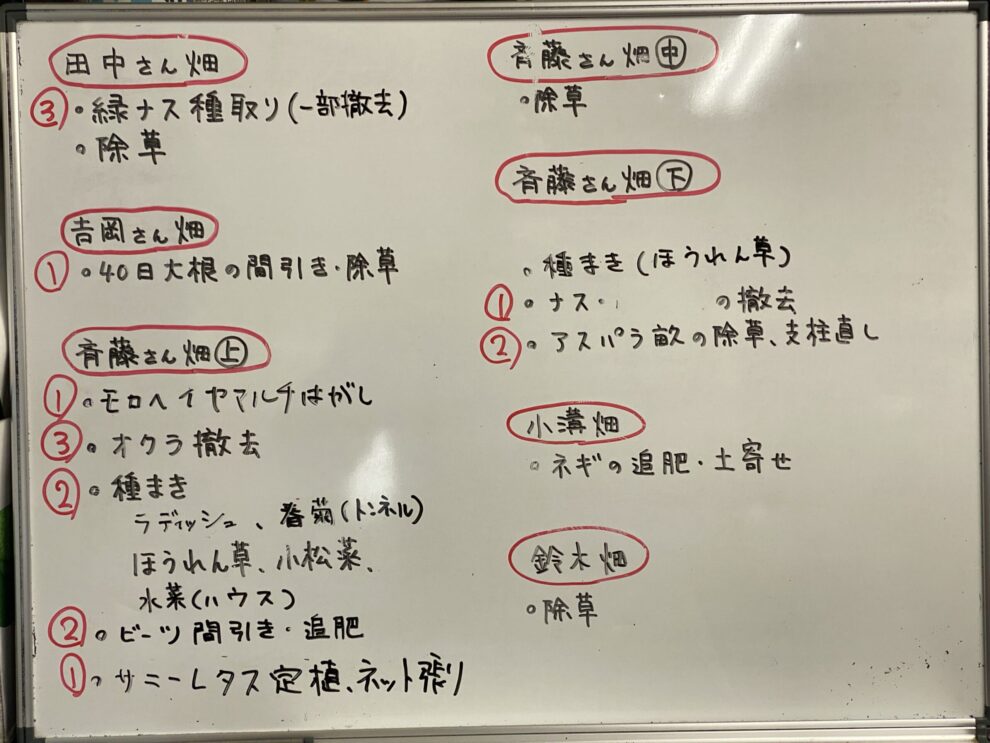 田中さん畑
③・緑ナス種取り(一部撤去)
・除草
吉岡さん畑
①・40日大根の間引き・除草
斉藤さん畑㊤
①・モロヘイヤマルチはがし
③・オクラ撤去
②・種まき
ラディッシュ、春菊(トンネル)
ほうれん草、小松菜、
水菜(ハウス)
②・ビーツ間引き・追肥
①・サニーレタス定植、ネット張り
斉藤さん畑㊥
・除草
斉藤さん畑㊦
・種まき(ほうれん草)
①・ナス・ の撤去
②・アスパラ畝の除草、支柱直し
小溝畑
・ネギの追肥・土寄せ
鈴木畑
・除草